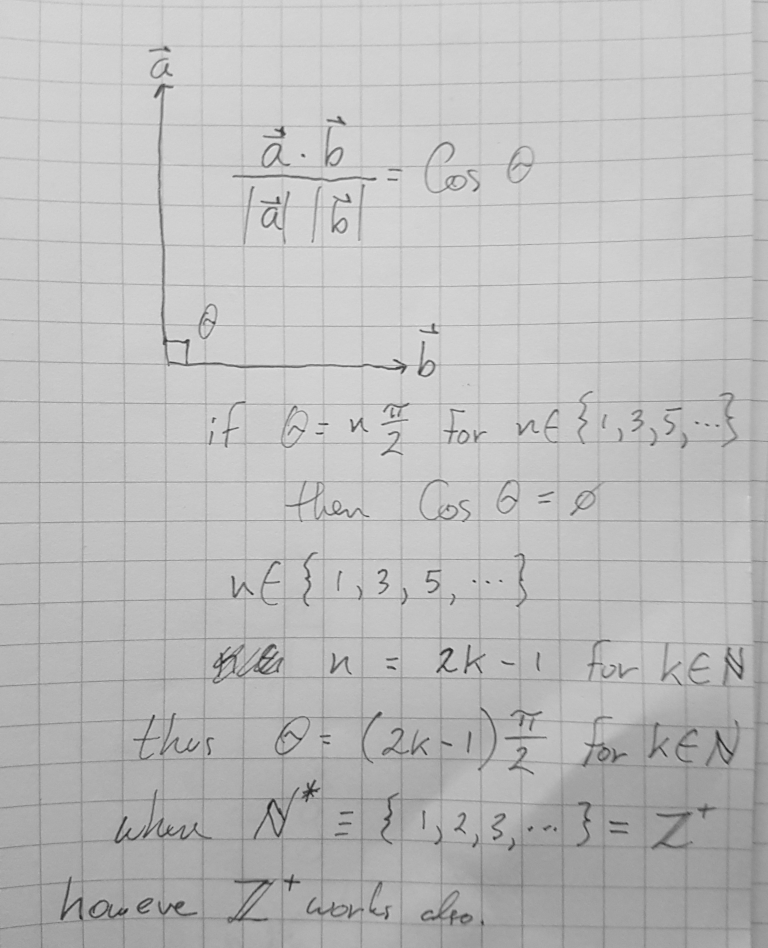 a⃗
a⃗ · b⃗ / |a⃗| |b⃗| = Cos θ
θ
b⃗
if θ = n π/2 for n ∈ {1, 3, 5, ...}
then Cos θ = ∅
n ∈ {1, 3, 5, ...}
n = 2k - 1 for k ∈ ℕ
thus θ = (2k-1) π/2 for k ∈ ℕ
where ℕ* ≡ {1, 2, 3, ...} = ℤ⁺
howeve ℤ⁺ works also.